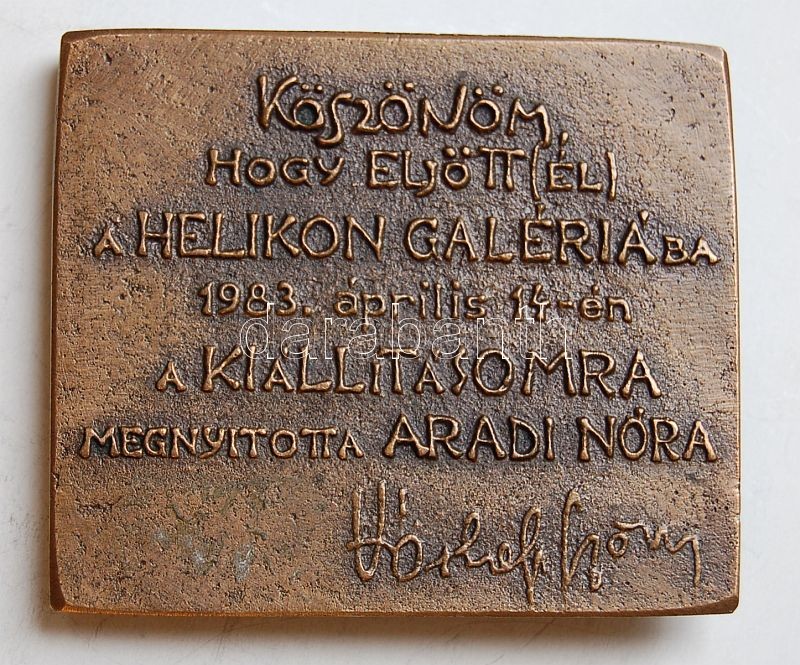 KöSZÖNÖM,
HOGY ELJÖTT(ÉL)
A HELIKON GALÉRIÁBA
1983. április 14-én
A KIÁLLÍTÁSOMRA
MEGNYITOTTA ARADI NÓRA
darabanth